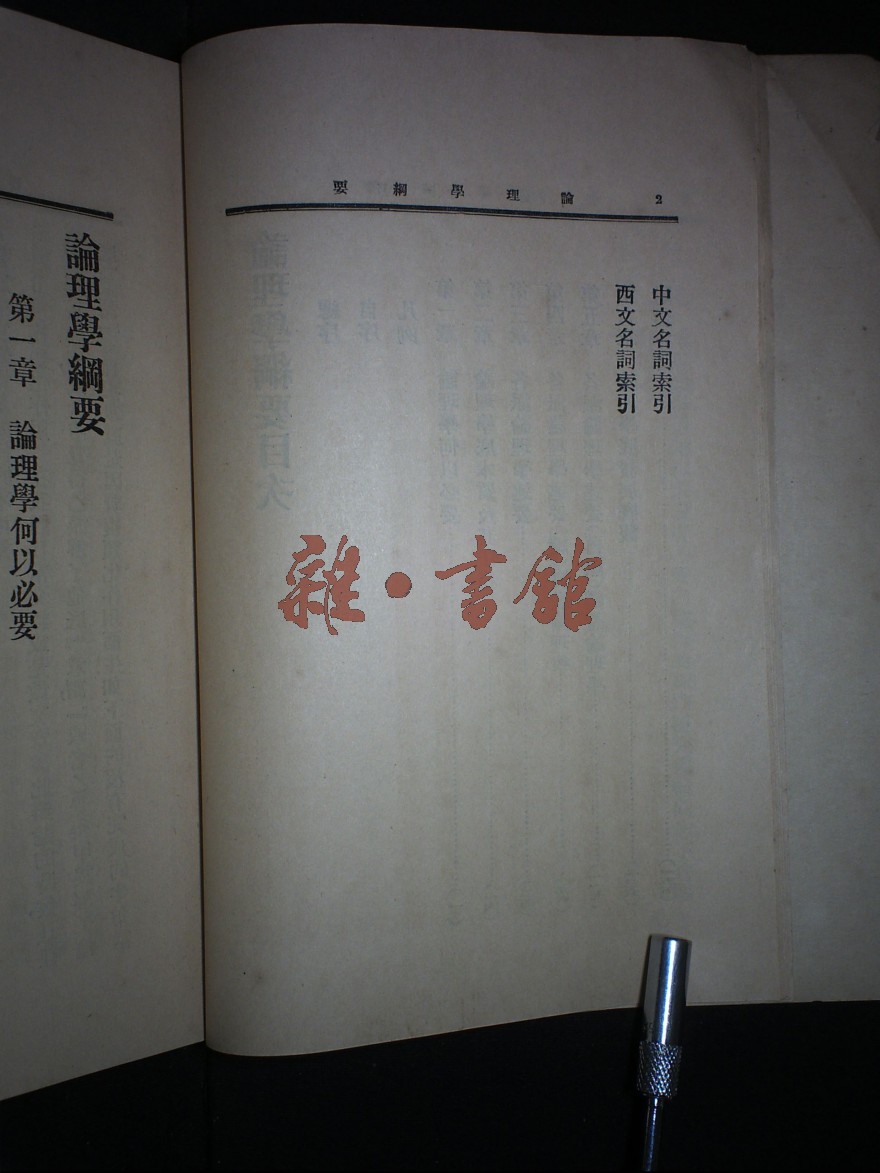 論理學綱要 2
中文名詞索引
西文名詞索引
論理學綱要
第一章 論理學何以必要
雜·書館